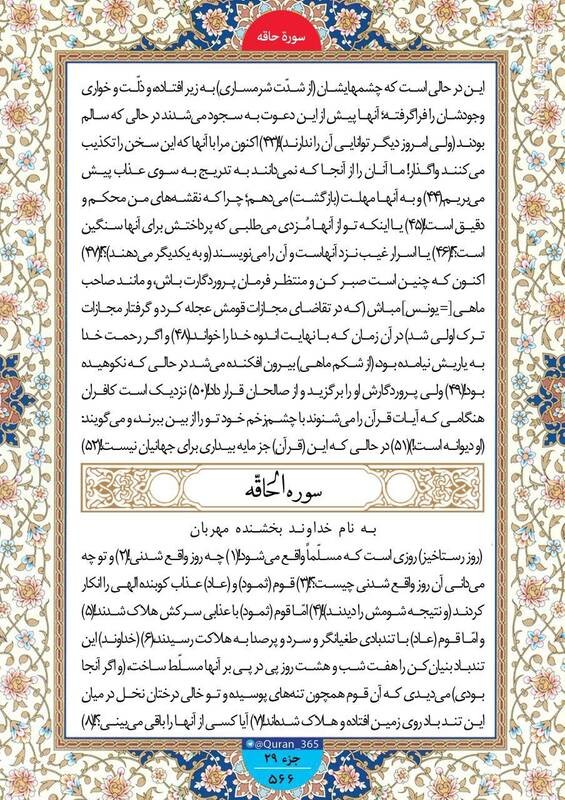 سورة حاقه
این در حالی است که چشمهایشان (از شدّت شرمساری) به زیر افتاده، و ذلّت و خواری
وجودشان را فراگرفته؛ آنها پیش از این دعوت به سجود می‌شدند در حالی که سالم
بودند (ولی امروز دیگر توانایی آن را ندارند)!(۴۳) اکنون مرا با آنها که این سخن را تکذیب
می‌کنند واگذار! ما آنان را از آنجا که نمی‌دانند به تدریج به سوی عذاب پیش
می‌بریم.(۴۴) و به آنها مهلت (بازگشت) می‌دهم؛ چرا که نقشه‌های من محکم و
دقیق است!(۴۵) یا اینکه تو از آنها مُزدی می‌طلبی که پرداختش برای آنها سنگین
است؟!(۴۶) یا اسرار غیب نزد آنهاست و آن را می‌نویسند (و به یکدیگر می‌دهند)؟!(۴۷)
اکنون که چنین است صبر کن و منتظر فرمان پروردگارت باش، و مانند صاحب
ماهی [=یونس] مباش (که در تقاضای مجازات قومش عجله کرد و گرفتار مجازات
ترک اولی شد) در آن زمان که با نهایت اندوه خدا را خواند.(۴۸) و اگر رحمت خدا
به یاریش نیامده بود، (از شکم ماهی) بیرون افکنده می‌شد در حالی که نکوهیده
بود!(۴۹) ولی پروردگارش او را برگزید و از صالحان قرار داد!(۵۰) نزدیک است کافران
هنگامی که آیات قرآن را می‌شنوند با چشم‌زخم خود تو را از بین ببرند، و می‌گویند:
(او دیوانه است!)(۵۱) در حالی که این (قرآن) جز مایه بیداری برای جهانیان نیست!(۵۲)
سوره الحاقّه
به نام خداوند بخشنده مهربان
(روز رستاخیز) روزی است که مسلّماً واقع می‌شود!(۱) چه روز واقع شدنی!(۲) و تو چه
می‌دانی آن روز واقع شدنی چیست؟!(۳) قوم (ثمود) و (عاد) عذاب کوبنده الهی را انکار
کردند (و نتیجه شومش را دیدند)!(۴) امّا قوم (ثمود) با عذابی سرکش هلاک شدند!(۵)
و امّا قوم (عاد) با تندبادی طغیانگر و سرد و پرصدا به هلاکت رسیدند،(۶) (خداوند) این
تندباد بنیان‌کن را هفت شب و هشت روز پی در پی بر آنها مسلّط ساخت، (و اگر آنجا
بودی) می‌دیدی که آن قوم همچون تنه‌های پوسیده و تو خالی درختان نخل در میان
این تند باد روی زمین افتاده و هلاک شده‌اند!(۷) آیا کسی از آنها را باقی می‌بینی؟!(۸)
@Quran_365
جزء ۲۹
۵۶۶